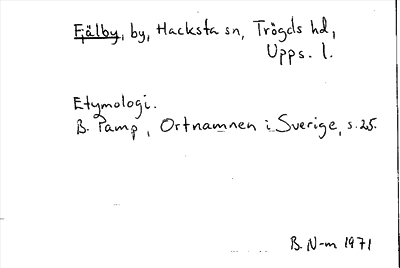 Fjälby, by, Hacksta sn, Trögds hd,
Upps. l.
Etymologi.
B. Pamp, Ortnamnen i Sverige, s. 25.
B. N-m 1971